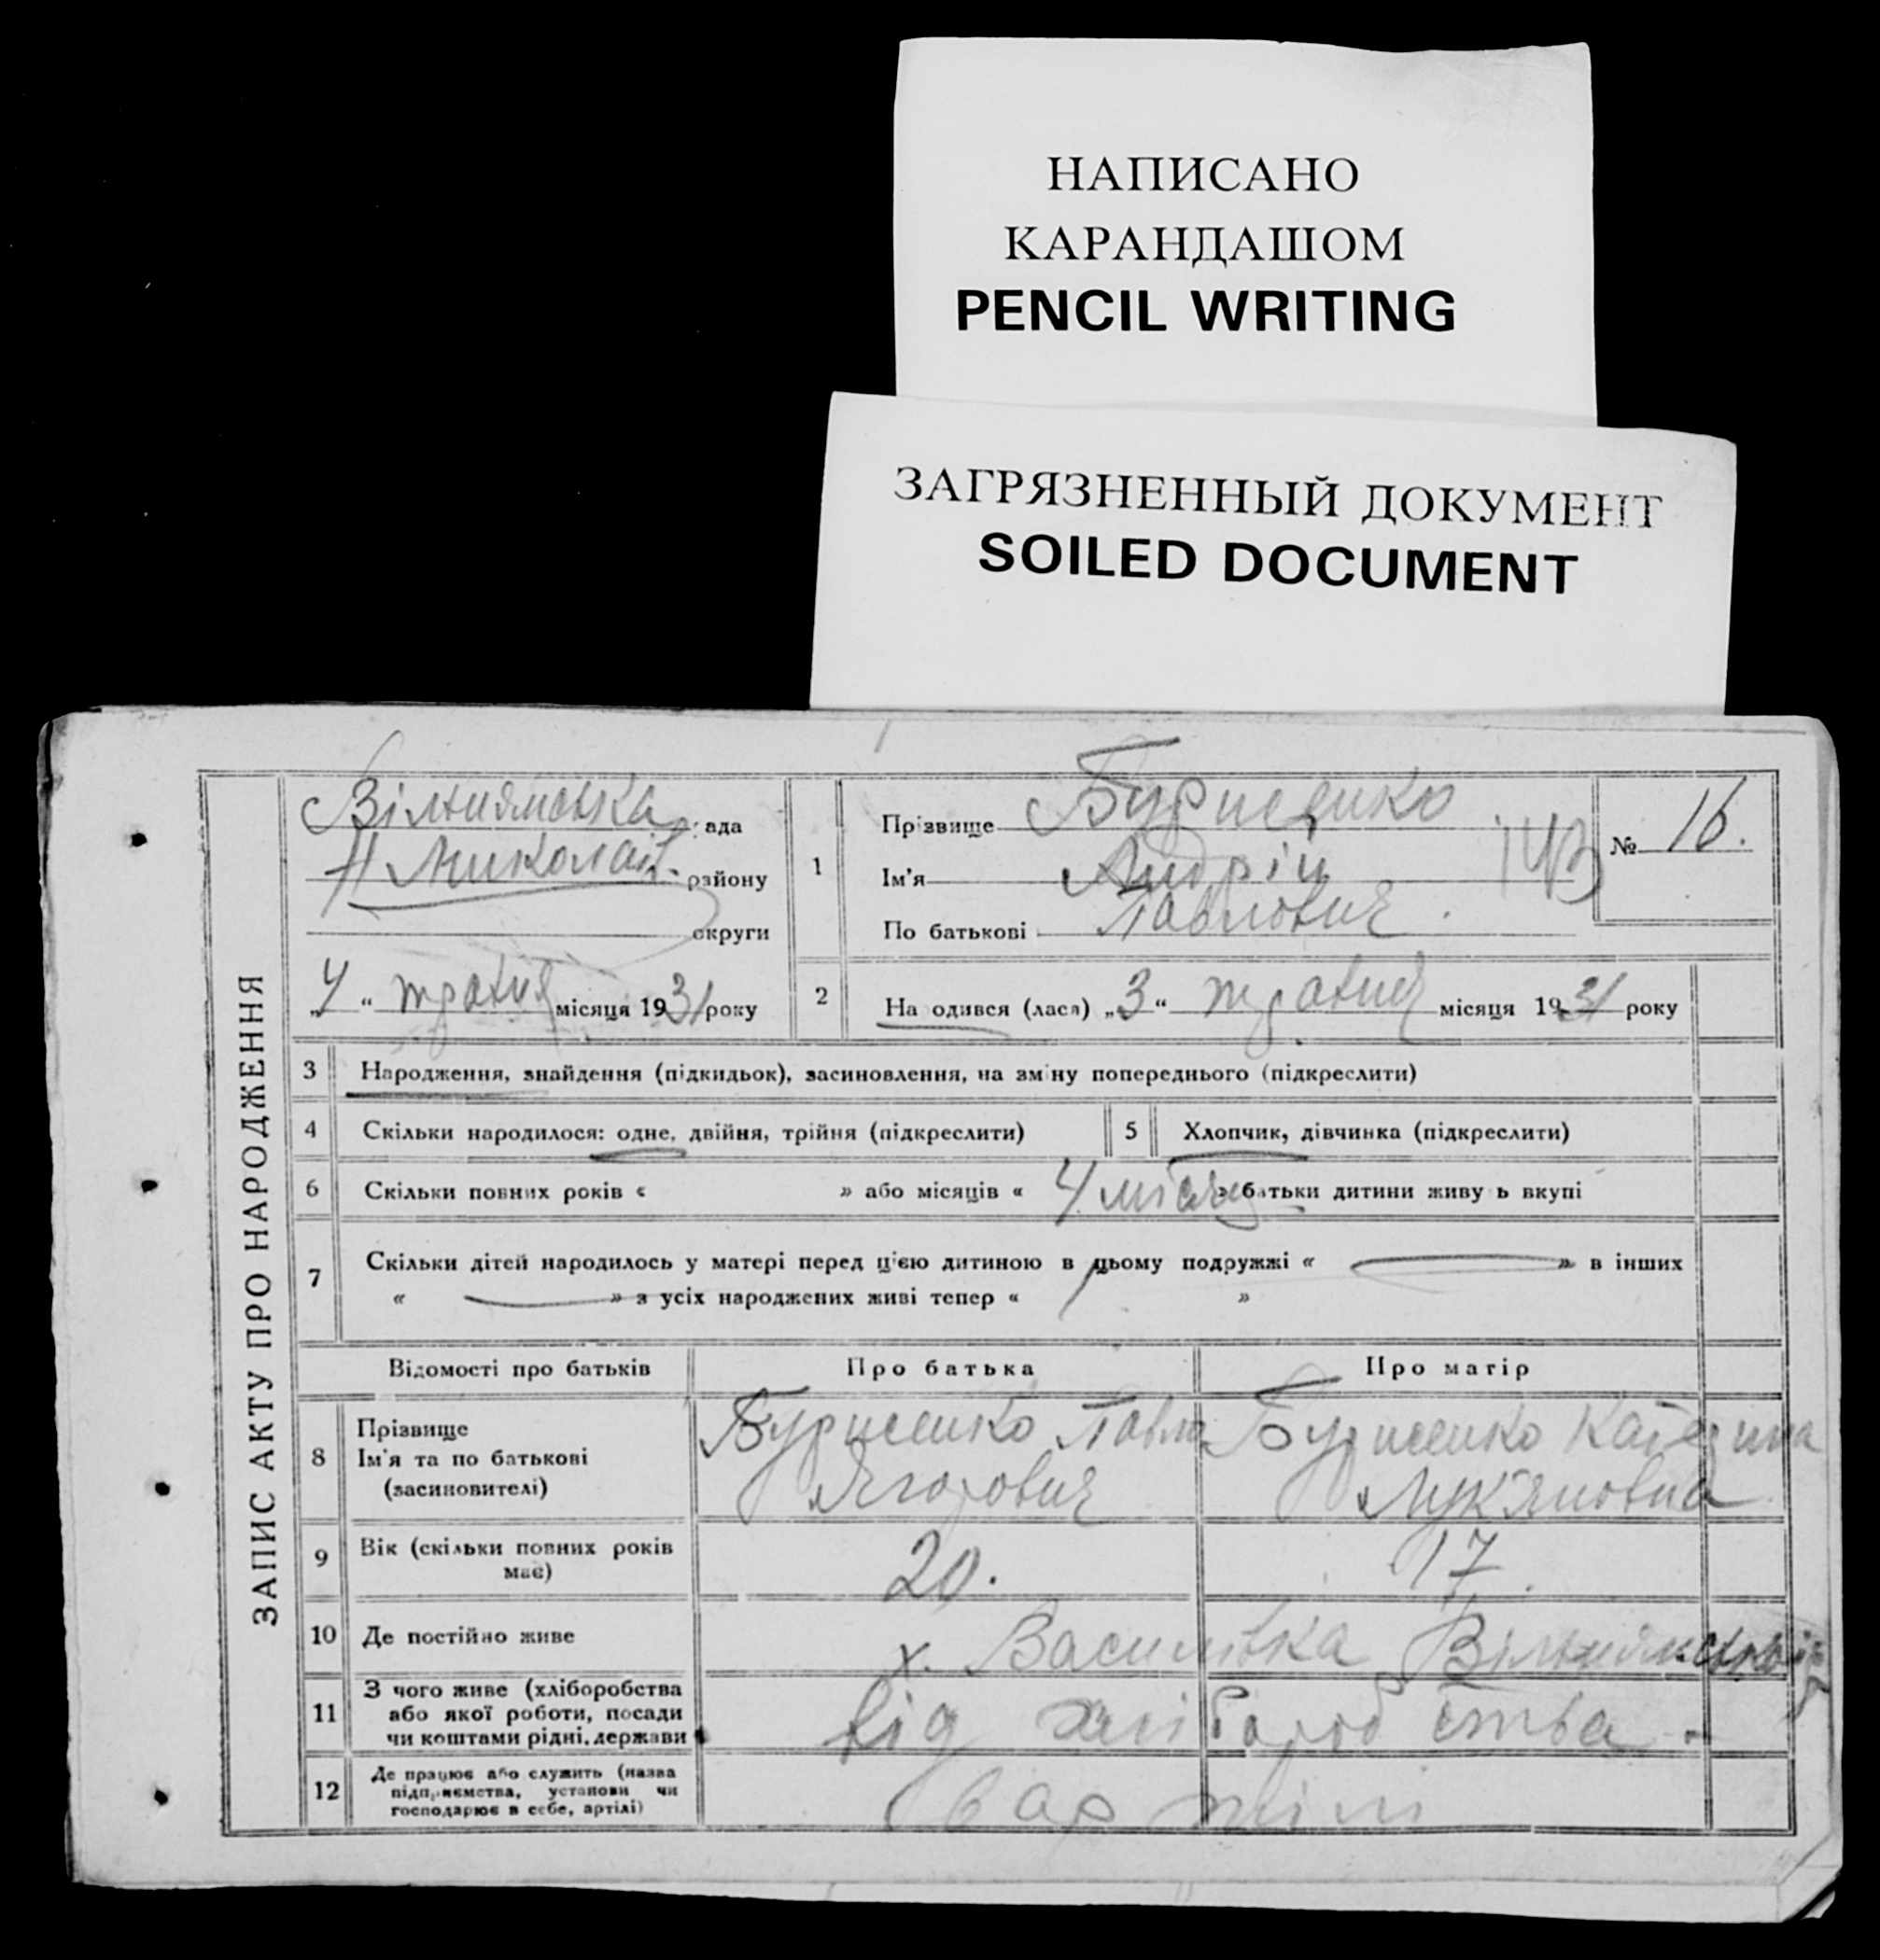 НАПИСАНО
КАРАНДАШОМ
PENCIL WRITING
ЗАГРЯЗНЕННЫЙ ДОКУМЕНТ
SOILED DOCUMENT
ЗАПИС АКТУ ПРО НАРОДЖЕННЯ
рада
Н Миколаїв. району
округи
„4“ травня місяця 1931 року
1 Прізвище
Ім'я Андрій
По батькові Павлович.
№ 16.
2 На одився (лася) „3“ травня місяця 1931 року
3 Народження, знайдення (підкидьок), засиновлення, на зміну попереднього (підкреслити)
4 Скільки народилося: одне, двійня, трійня (підкреслити) 5 Хлопчик, дівчинка (підкреслити)
6 Скільки повних років « » або місяців « 4 місяц » батьки дитини живу ь вкупі
7 Скільки дітей народилось у матері перед ц'єю дитиною в цьому подружжі « — » в інших
« — » з усіх народжених живі тепер « »
Відомості про батьків Про батька Про матір
8 Прізвище
Ім'я та по батькові
(засиновителі)
Павло
Ягорович
Катерина
Лук'яновна
9 Вік (скільки повних років
має)
20. 17.
10 Де постійно живе х. Василівка
11 З чого живе (хліборобства
або якої роботи, посади
чи коштами рідні, держави
від хліборобства
12 Де працює або служить (назва
підприємства, установи чи
господарює в себе, артілі)
в артілі